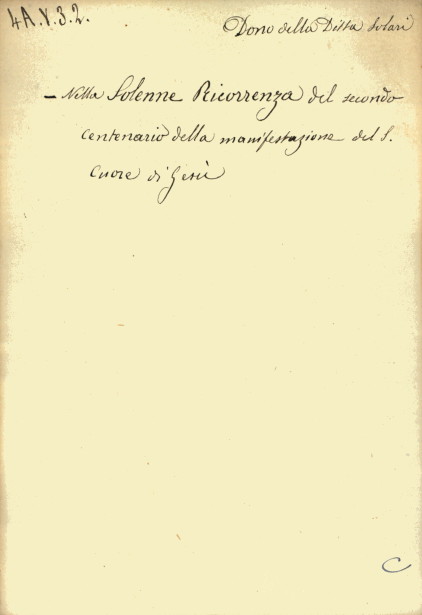 4A.V.3.2.
Dono della Ditta Solari
– Nella Solenne Ricorrenza del secondo
centenario della manifestazione del S.
Cuore di Gesù
C